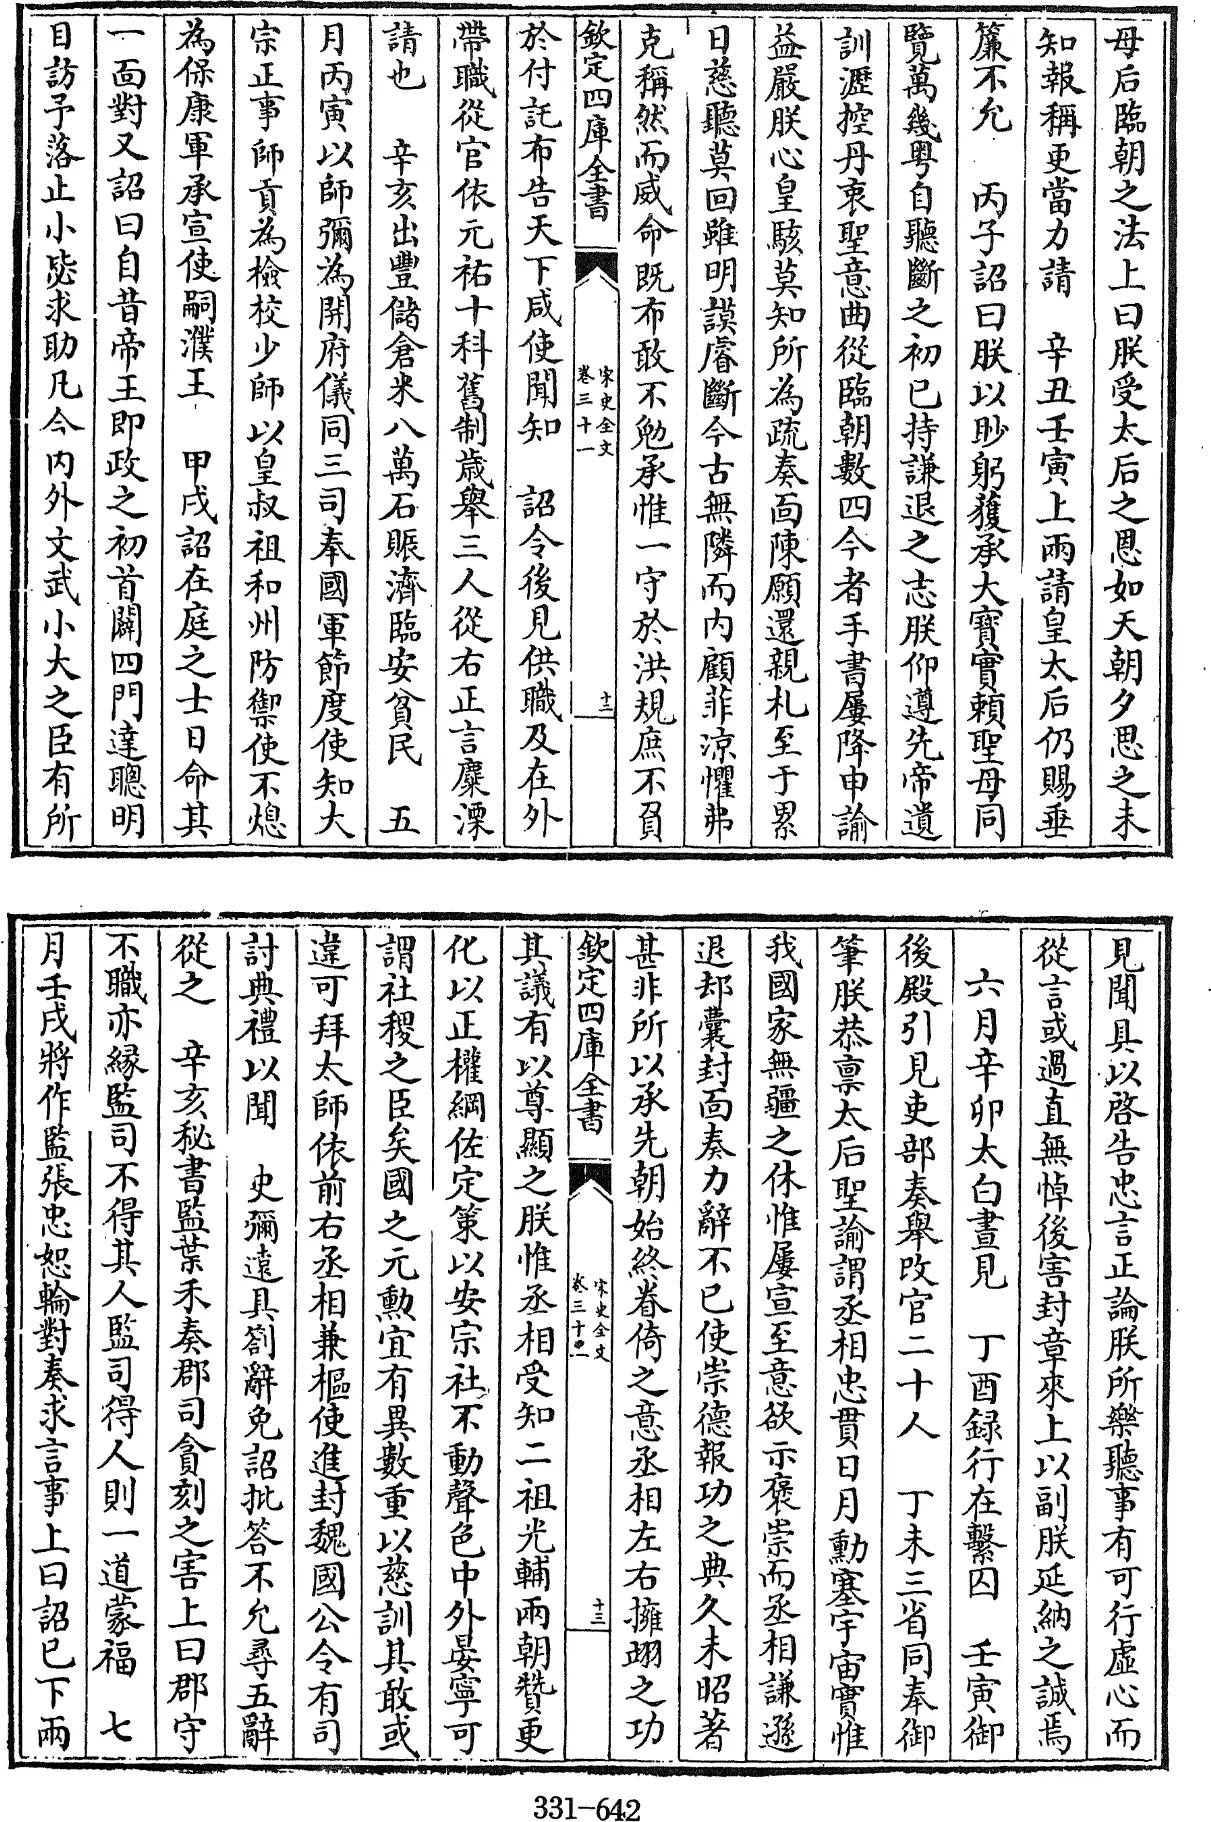 母后臨朝之法上曰朕受太后之恩如天朝夕思之未
知報稱更當力請　辛丑壬寅上兩請皇太后仍賜垂
簾不允　丙子詔曰朕以眇躬獲承大寶實賴聖母同
覽萬幾粤自聽斷之初已持謙退之志朕仰遵先帝遺
訓瀝控丹衷聖意曲從臨朝數四今者手書屢降申諭
益嚴朕心皇駭莫知所為疏奏面陳願還親札至于累
日慈聽莫回雖明謨睿斷今古無隣而内顧菲凉懼弗
克稱然而威命既布敢不勉承惟一守於洪規庶不負
欽定四庫全書　宋史全文卷三十一　十二
於付託布告天下咸使聞知　詔今後見供職及在外
帶職從官依元祐十科舊制歲舉三人從右正言糜溧
請也　辛亥出豐儲倉米八萬石賑濟臨安貧民　五
月丙寅以師彌為開府儀同三司奉國軍節度使知大
宗正事師貢為檢校少師以皇叔祖和州防禦使不熄
為保康軍承宣使嗣濮王　甲戌詔在庭之士日命其
一面對又詔曰自昔帝王即政之初首闢四門達聰明
目訪予落止小毖求助凡今内外文武小大之臣有所
見聞具以啓告忠言正論朕所樂聽事有可行虛心而
從言或過直無悼後害封章來上以副朕延納之誠焉
六月辛卯太白晝見　丁酉録行在繫囚　壬寅御
後殿引見吏部奏舉改官二十人　丁未三省同奉御
筆朕恭禀太后聖諭謂丞相忠貫日月勳塞宇宙實惟
我國家無疆之休惟屢宣至意欲示褒崇而丞相謙遜
退却囊封面奏力辭不已使崇德報功之典久未昭著
甚非所以承先朝始終眷倚之意丞相左右擁翊之功
其議有以尊顯之朕惟丞相受知二祖光輔兩朝贊更
欽定四庫全書　宋史全文卷三十一　十三
化以正權綱佐定策以安宗社不動聲色中外晏寧可
謂社稷之臣矣國之元勳宜有異數重以慈訓其敢或
違可拜太師依前右丞相兼樞使進封魏國公令有司
討典禮以聞　史彌遠具劄辭免詔批答不允尋五辭
從之　辛亥秘書監葉禾奏郡司貪刻之害上曰郡守
不職亦緣監司不得其人監司得人則一道蒙福　七
月壬戌將作監張忠恕輪對奏求言事上曰詔已下兩
331-642